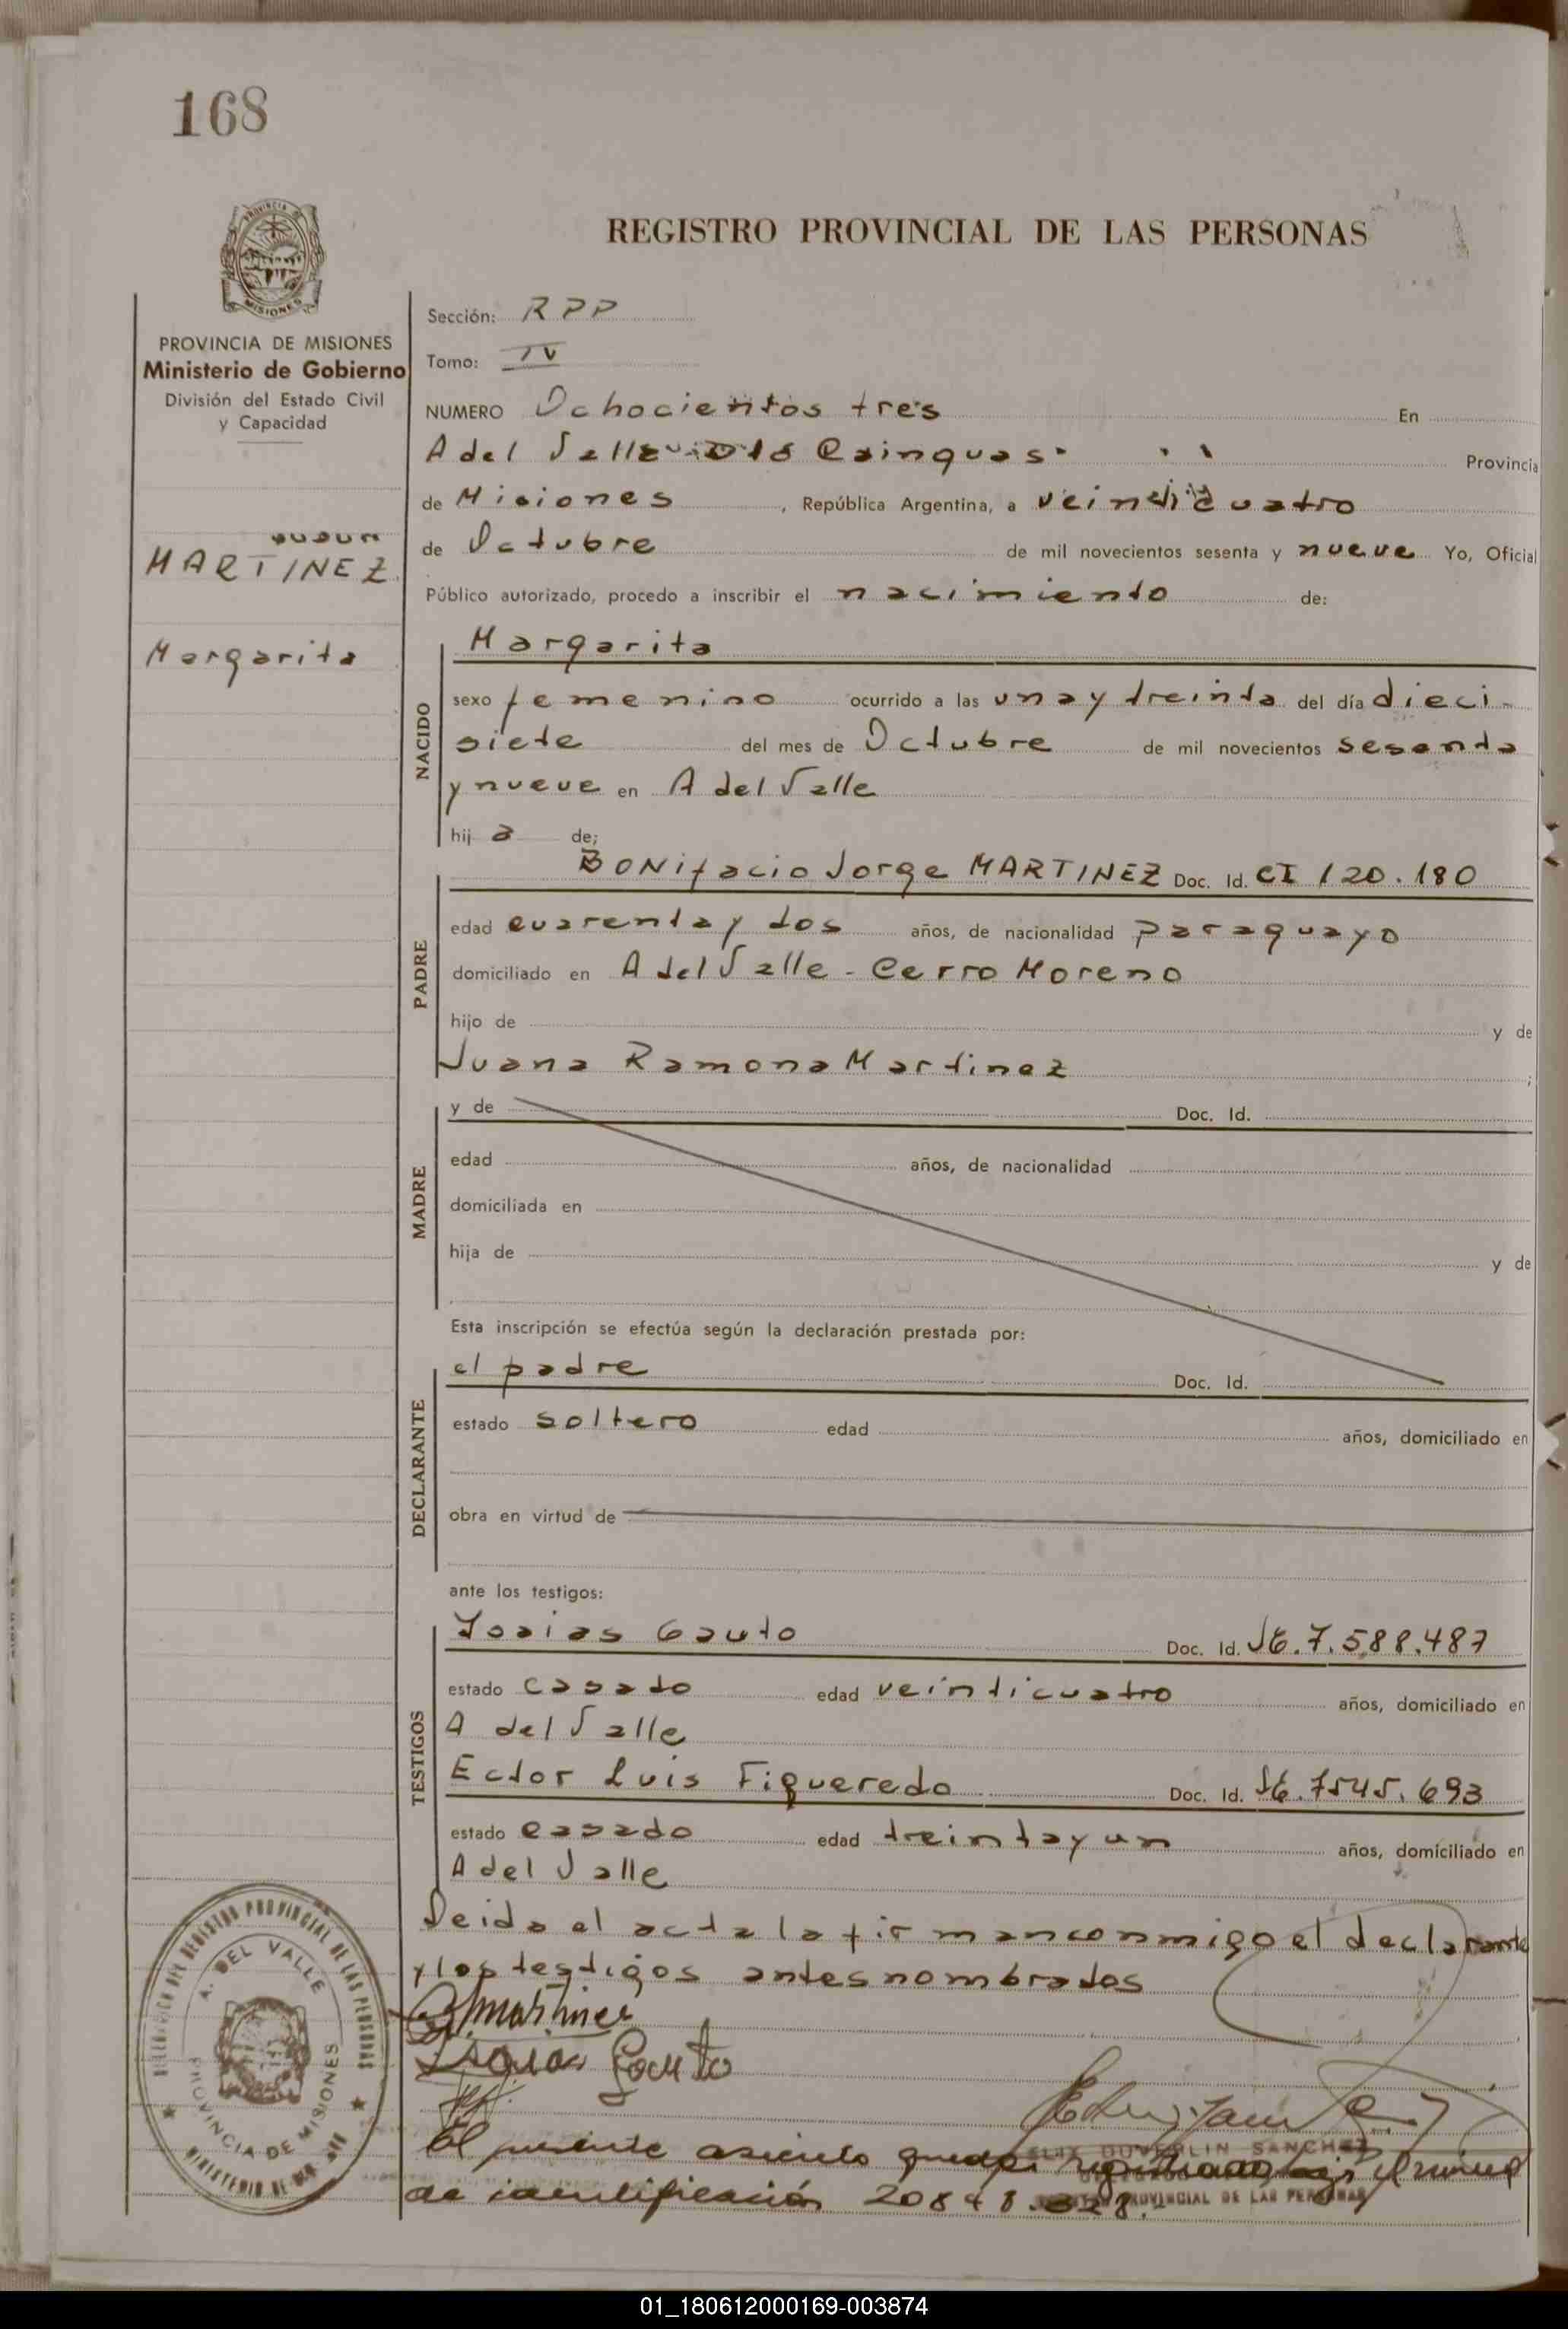 168
PROVINCIA DE
MISIONES
REGISTRO PROVINCIAL DE LAS PERSONAS
PROVINCIA DE MISIONES
Ministerio de Gobierno
División del Estado Civil
y Capacidad
MARTINEZ
Margarita
Sección: RPP
Tomo: IV
NUMERO Ochocientos tres En
A del Valle Dto Cainguas Provincia
de Misiones, República Argentina, a veinticuatro
de Octubre de mil novecientos sesenta y nueve Yo, Oficial
Público autorizado, procedo a inscribir el nacimiento de:
NACIDO
Margarita
sexo femenino ocurrido a las una y treinta del día dieci
siete del mes de Octubre de mil novecientos sesenta
y nueve en A del Valle
hij a de;
PADRE
BONifacio Jorge MARTINEZ Doc. Id. CI 120.180
edad cuarenta y dos años, de nacionalidad paraguayo
domiciliado en A del Valle - Cerro Moreno
hijo de y de
Juana Ramona Martinez ;
MADRE
y de Doc. Id.
edad años, de nacionalidad
domiciliada en
hija de y de
Esta inscripción se efectúa según la declaración prestada por:
DECLARANTE
el padre Doc. Id.
estado soltero edad años, domiciliado en
obra en virtud de
ante los testigos:
TESTIGOS
Isaias Gauto Doc. Id. 7.588.487
estado casado edad veinticuatro años, domiciliado en
A del Valle
Ector Luis Figueredo Doc. Id. 7545.693
estado casado edad treinta y un años, domiciliado en
A del Valle
Leida el acta la firman conmigo el declarante
y los testigos antes nombrados
Martinez
Isaias Gauto
DELEGACION DEL REGISTRO PROVINCIAL DE LAS PERSONAS
A. DEL VALLE
PROVINCIA DE MISIONES
SANCHEZ
PROVINCIAL DE LAS PERSONAS
El presente asiento queda registrado bajo el numero
de identificación
01_180612000169-003874